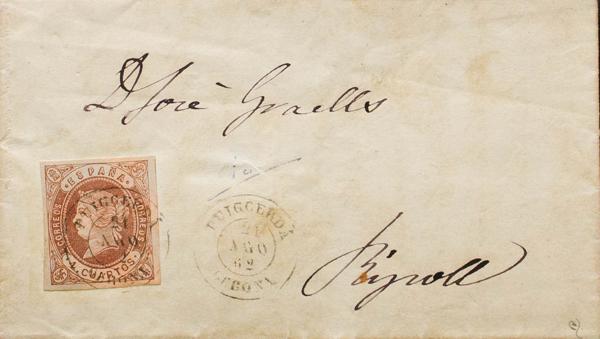 D José Graells
ESPAÑA
CORREOS
CORREOS
4 CUARTOS
PUIGCERDA
21
AGO
PUIGCERDA
21
AGO
62
GERONA
Ripoll